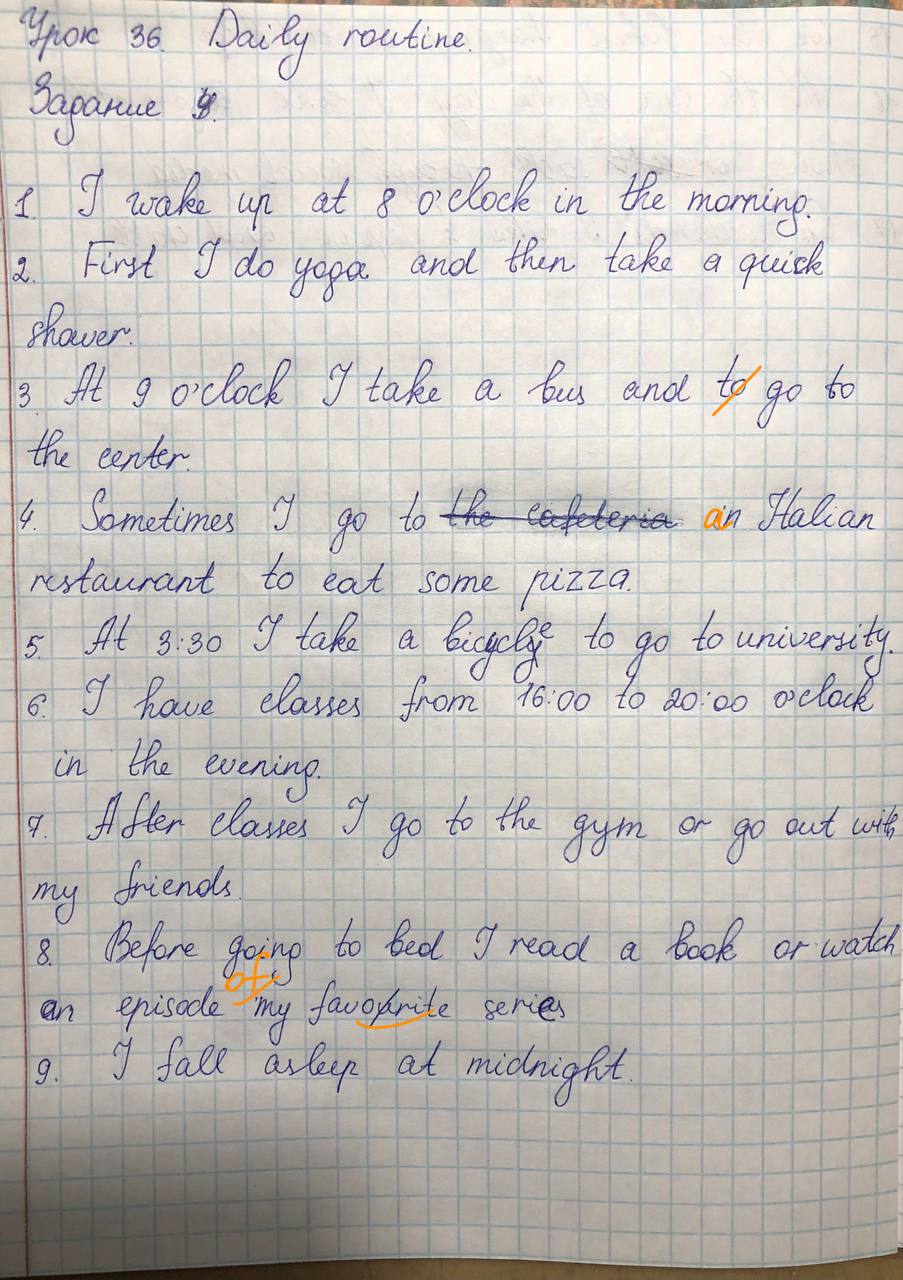 Урок 36. Daily routine.
Задание 9.
1. I wake up at 8 o'clock in the morning.
2. First I do yoga and then take a quick
shower.
3 At 9 o'clock I take a bus and to go to
the center.
4. Sometimes I go to the cafeteria an Italian
restaurant to eat some pizza.
5. At 3:30 I take a bicycle to go to university.
6. I have classes from 16:00 to 20:00 o'clock
in the evening.
7. After classes I go to the gym or go out with
my friends.
8. Before going to bed I read a book or watch
of
an episode my favourite series
9. I fall asleep at midnight.